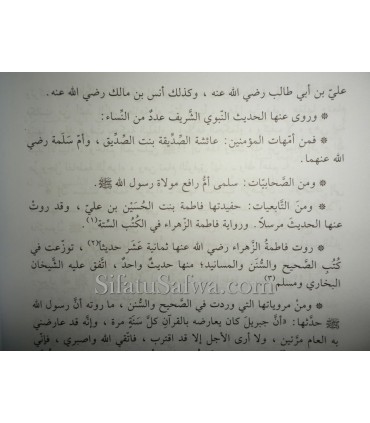 عليّ بن أبي طالب رضي الله عنه ، وكذلك أنس بن مالك رضي الله عنه.
* وروى عنها الحديث النّبوي الشّريف عددٌ من النّساء:
* فمن أمّهات المؤمنين: عائشة الصّديقة بنت الصّديق ، وأمّ سَلَمة رضي
الله عنهما.
* ومن الصَّحابيّات: سلمى أمُّ رافع مولاة رسول الله ﷺ.
* ومن التَّابعيات: حفيدتها فاطمة بنت الحُسَيْن بن عليّ ، وقد روتْ
عنها الحديث مرسلاً. ورواية فاطمة الزّهراء في الكُتُب السِّتة(١).
* روت فاطمةُ الزّهراء رضي الله عنها ثمانية عَشَر حديثاً(٢) ، توزّعت في
كُتُبِ الصَّحيح والسُّنَن والمسانيد؛ منها حديثٌ واحدٌ ، اتّفق عليه الشَّيخان
البخاري ومسلم(٣)
SifatuSafwa.com
* ومنْ مروياتها التي وردت في الصَّحيح والسُّنن ، ما روته أنَّ رسول الله
ﷺ حدّثها: «أنَّ جبريلَ كان يعارضه بالقرآنِ كلَّ سَنَةٍ مرة ، وإنَّه قد عارضني
به العام مرَّتين ، ولا أرى الأجل إلا قد اقترب ، فاتّقي الله واصبري ، فإنّي